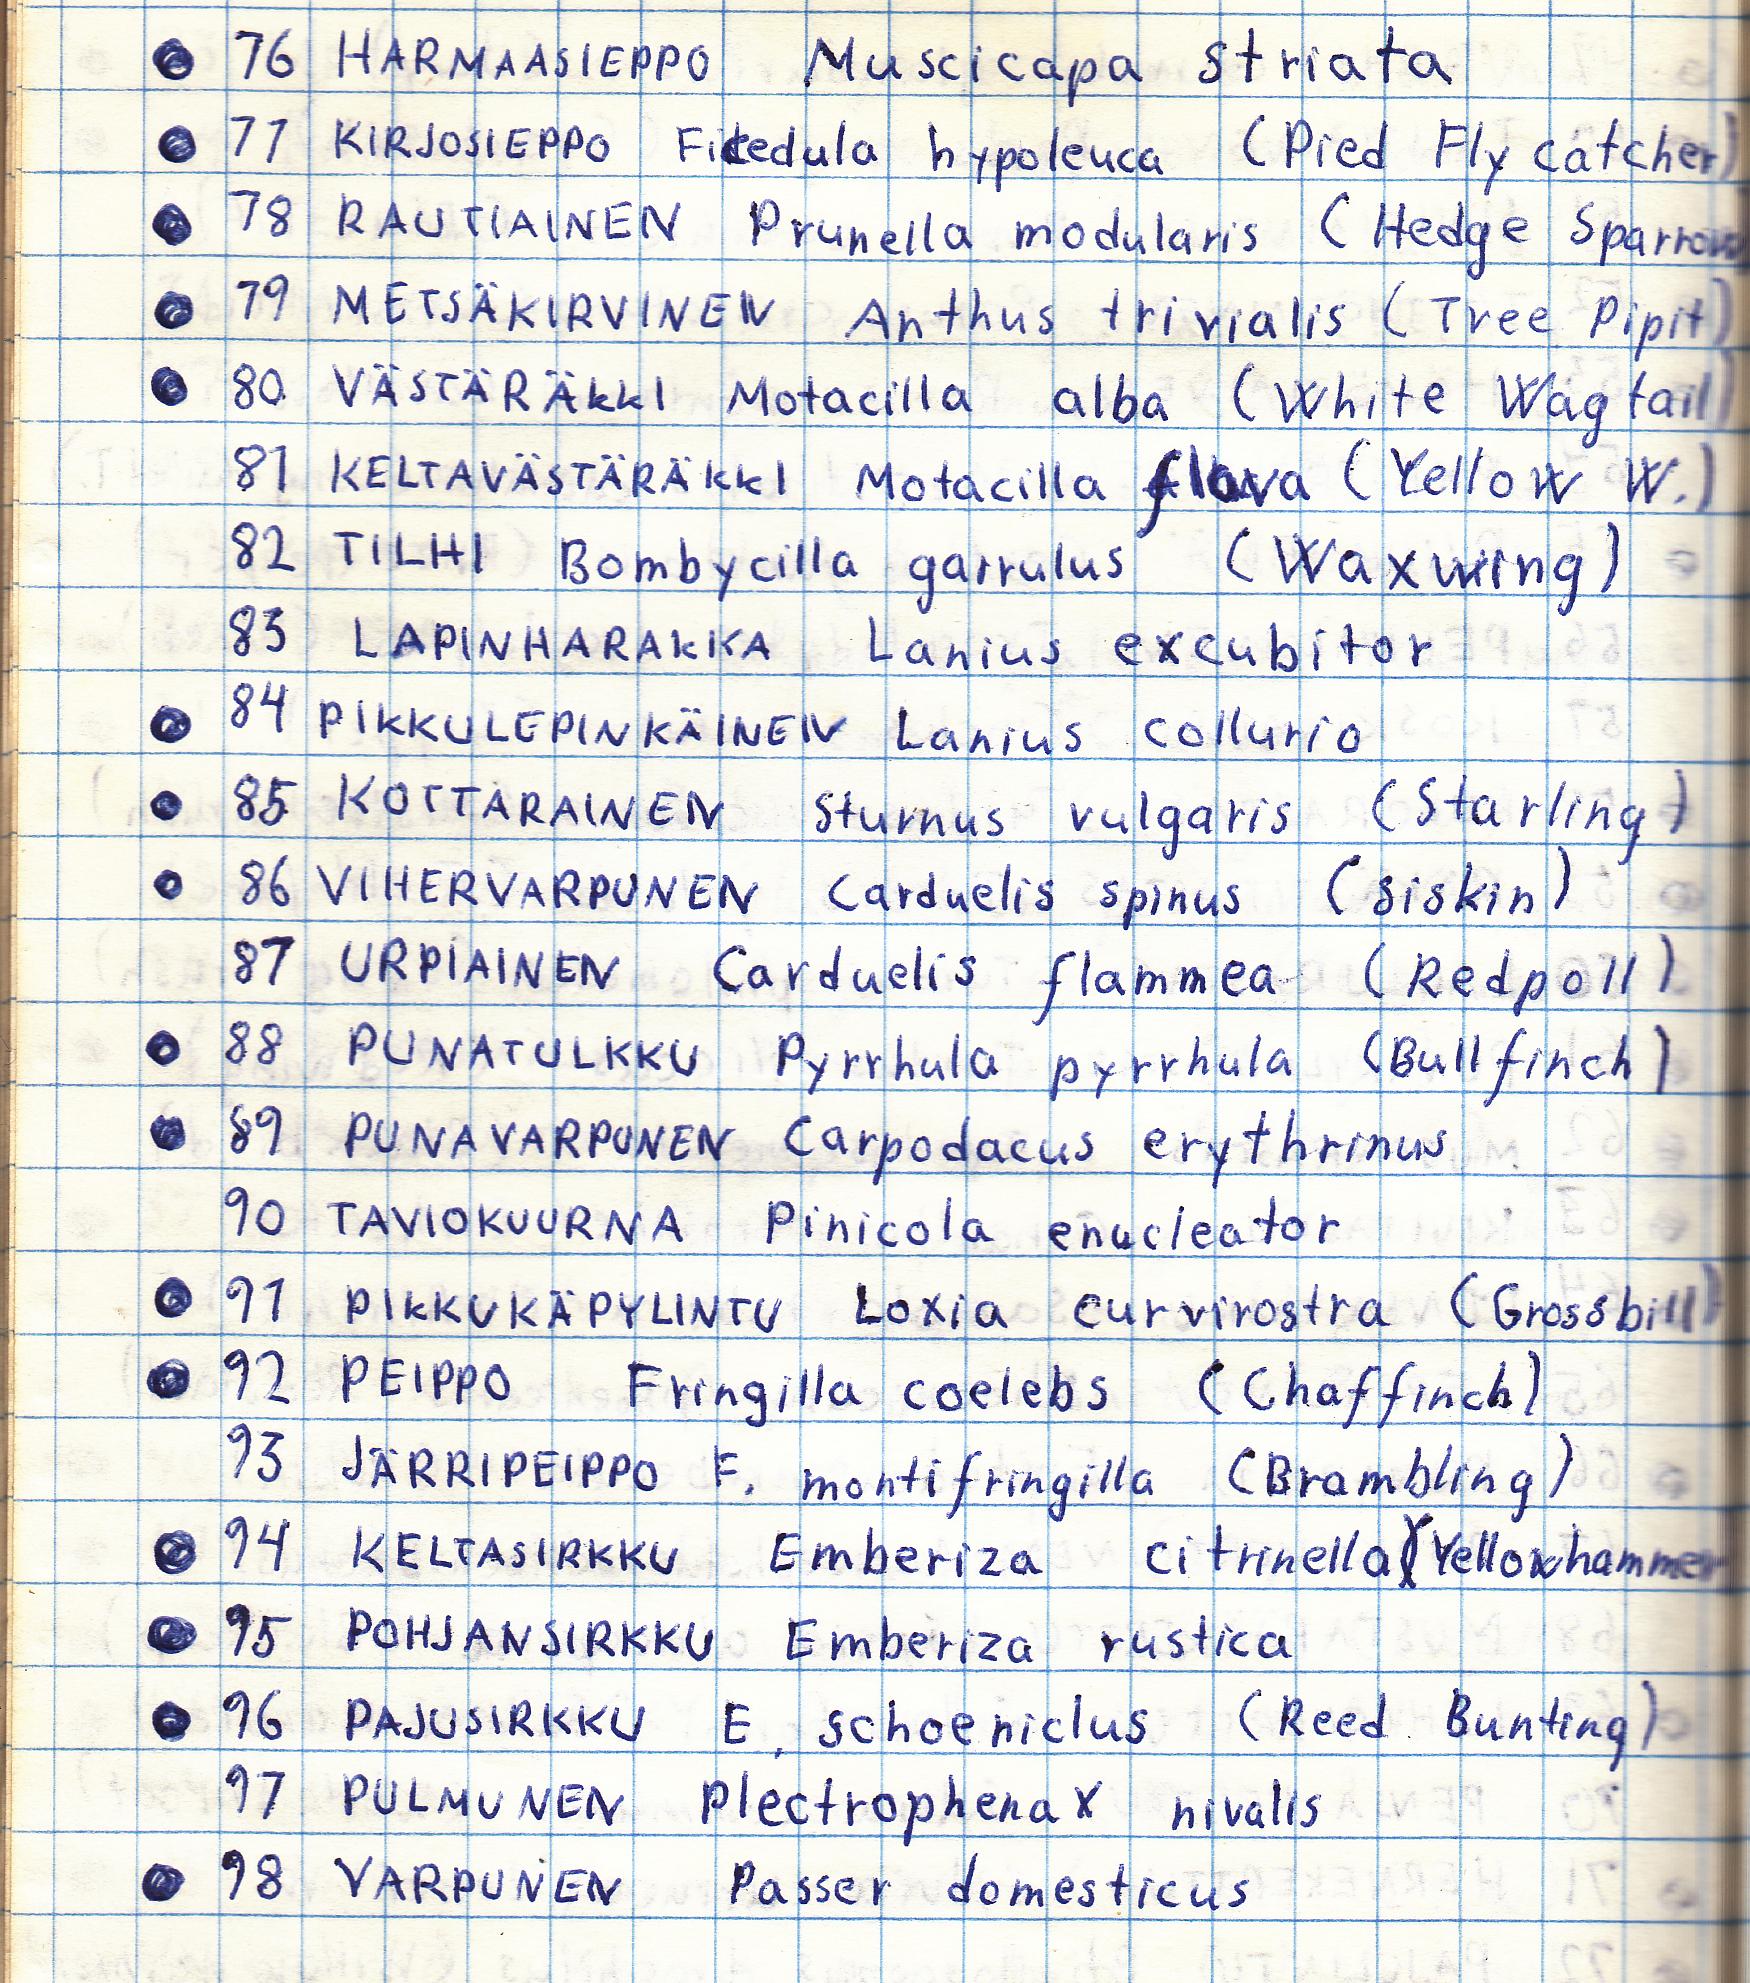 76 HARMAASIEPPO Muscicapa striata
77 KIRJOSIEPPO Ficedula hypoleuca (Pied Flycatcher)
78 RAUTIAINEN Prunella modularis (Hedge Sparrow)
79 METSÄKIRVINEN Anthus trivialis (Tree Pipit)
80 VÄSTÄRÄKKI Motacilla alba (White Wagtail)
81 KELTAVÄSTÄRÄKKI Motacilla flava (Yellow W.)
82 TILHI Bombycilla garrulus (Waxwing)
83 LAPINHARAKKA Lanius excubitor
84 PIKKULEPINKÄINEN Lanius collurio
85 KOTTARAINEN Sturnus vulgaris (Starling)
86 VIHERVARPUNEN Carduelis spinus (Siskin)
87 URPIAINEN Carduelis flammea (Redpoll)
88 PUNATULKKU Pyrrhula pyrrhula (Bullfinch)
89 PUNAVARPUNEN Carpodacus erythrinus
90 TAVIOKUURNA Pinicola enucleator
91 PIKKUKÄPYLINTU Loxia curvirostra (Grossbill)
92 PEIPPO Fringilla coelebs (Chaffinch)
93 JÄRRIPEIPPO F. montifringilla (Brambling)
94 KELTASIRKKU Emberiza citrinella (Yellowhammer
95 POHJANSIRKKU Emberiza rustica
96 PAJUSIRKKU E. schoeniclus (Reed Bunting)
97 PULMUNEN Plectrophenax nivalis
98 VARPUNEN Passer domesticus